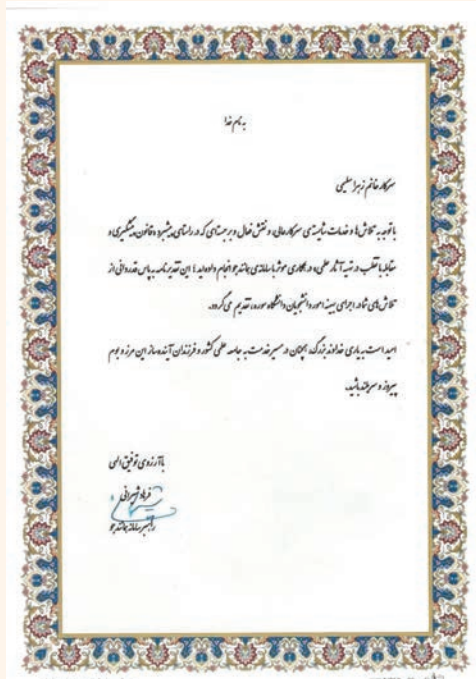 به نام خدا
سرکار خانم زهرا سلیمی
با توجه به تلاش‌ها و خدمات شایسته‌ی سرکارعالی، و نقش فعال و برجسته‌ای که در راستای پیشبرد «قانون پیشگیری و
مقابله با تقلب در تهیه آثار علمی» در همکاری موثر با سامانه‌ی همانندجو انجام داده‌اید؛ این تقدیرنامه به پاس قدردانی از
تلاش‌های شما در اجرای بهینه امور دانشجویان دانشگاه سوره، تقدیم می‌گردد.
امید است به یاری خداوند بزرگ، همچنان در مسیر خدمت به جامعه علمی کشور و فرزندان آینده‌ساز این مرز و بوم
پیروز و سربلند باشید.
با آرزوی توفیق الهی
فرهاد شیرانی
راهبر سامانه همانندجو